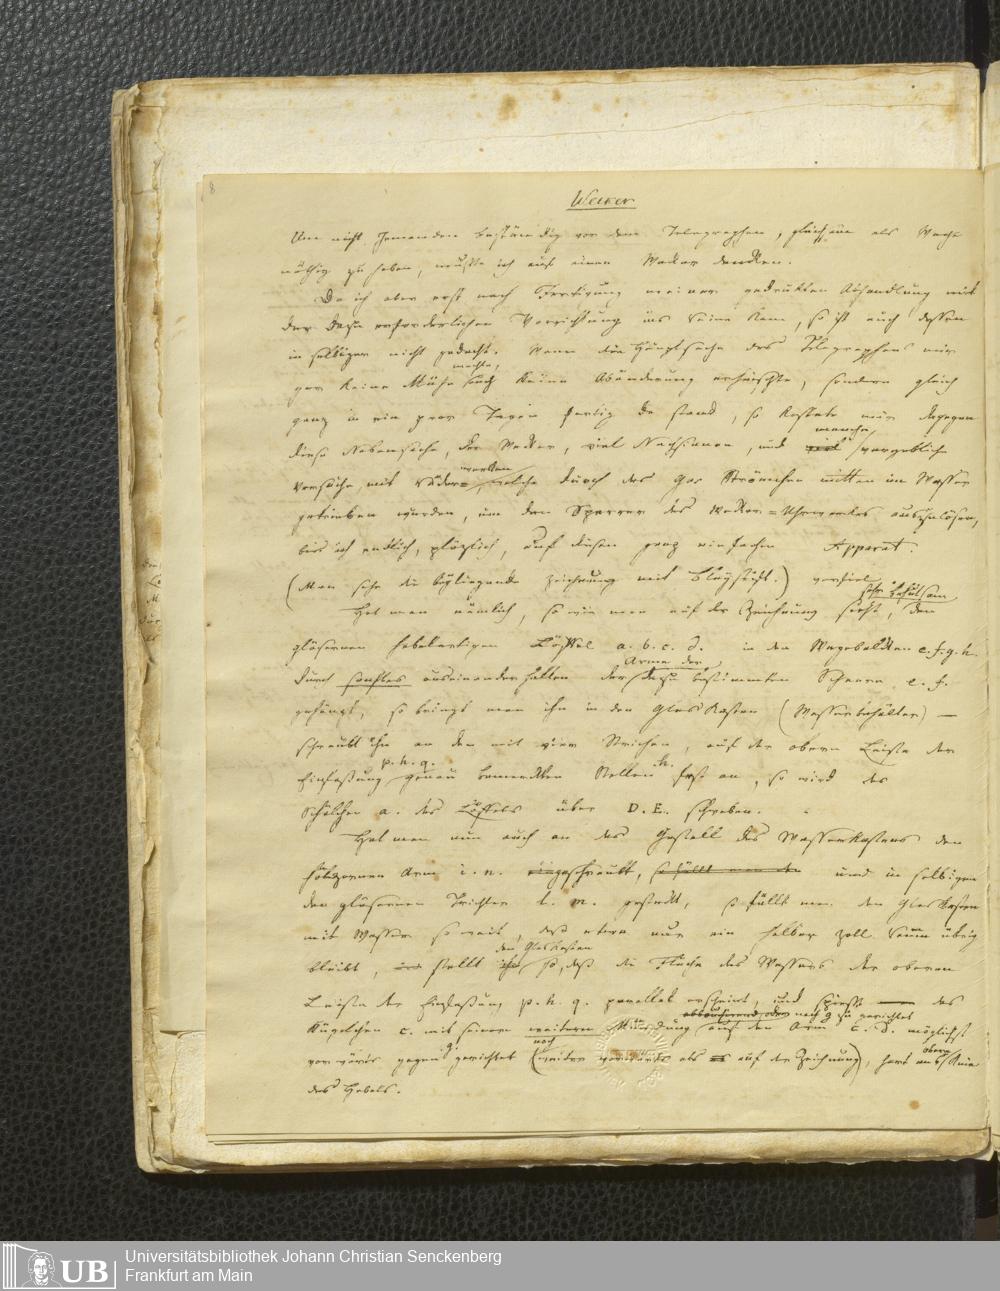 8
Wecker
Um nicht Jemanden beständig vor dem Telegraphen, gleichsam als Wache
nöthig zu haben, mußte ich auf einen Wecker denken.
Da ich aber erst nach Fertigung meiner gedrukten Abhandlung mit
der dazu erforderlichen Vorrichtung ins Reine kam, so ist auch dessen
in selbiger nicht gedacht. Wenn die Hauptsache des Telegraphens mir
machte,
gar keine Mühe und keine Abänderung erheischte, sondern gleich
ganz in ein paar Tagen fertig da stand, so kostete mir dagegen
manche
diese Nebensache, der Wecker, viel Nachsinnen, und viel vergebliche
Versuche, mit Räder, welche durch das Gas Strömchen mitten im Wasser
getrieben wurden, um den Sperrer des Wecker=Uhrwerkes auszulösen,
bis ich endlich, plözlich, auf diesen ganz einfachen Apparat.
(Man sehe die beyliegende Zeichnung mit Bleystift.) verfiel
sehr behutsam
Hat man nämlich, so wie man auf der Zeichnung sieht, den
gläsernen hebelartigen Löffel a. b. c. d. in den Wagebalken e. f. g. h.
Arme der
durch sanftes auseinanderhalten der dazu bestimmten Scheere e. f.
gehängt, so bringt man ihn in den Glas Kasten (Wasserbehälter) —
schraubt ihn an den mit vier Strichen, auf der obern Leiste der
p. h. q.
Einfaßung genau bemerkten Stellen fest an, so wird das
Schälchen a. des Löffels über D. E. schweben.
Hat man nun auch an das Gestell des Wasserkastens den
hölzernen Arm i. n. eingeschraubt, so füllt man den und in selbigen
den gläsernen Trichter l. m. gesteckt, so füllt man den Glas Kasten
mit Wasser so weit, daß etwa nur ein halber Zoll Raum übrig
den Glas Kasten
bleibt, stellt ihn so, daß die Fläche des Wassers der oberen
Leiste der Einfaßung p. h. q. parallel erscheint, und das
nach g zu gerichtet
Kügelchen c. mit seiner weitern Mündung auf den Arm c. d. möglichst
noch
vorwärts gegen g gerichtet (weiter vorwärts als auf der Zeichnung), hart am
obern
des Hebels.
Universitätsbibliothek Johann Christian Senckenberg
Frankfurt am Main
UB